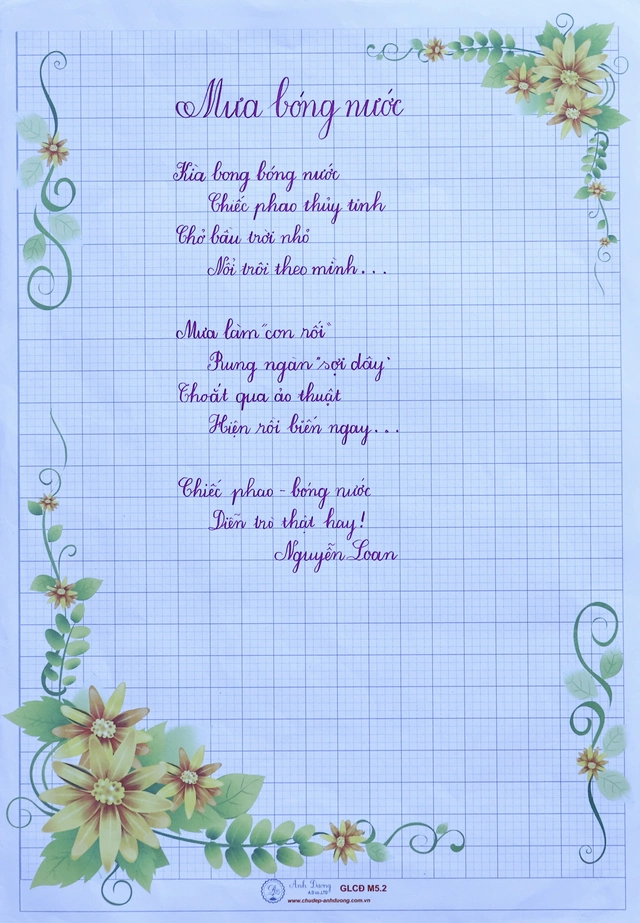 Mưa bóng nước
Kìa bong bóng nước
Chiếc phao thủy tinh
Chở bầu trời nhỏ
Nổi trôi theo mình...
Mưa làm "con rối"
Rung ngàn "sợi dây"
Thoắt qua ảo thuật
Hiện rồi biến ngay...
Chiếc phao - bóng nước
Diễn trò thật hay!
Nguyễn Loan
Ánh Dương
A.D co.,LTD
GLCĐ M5.2
www.chudep-anhduong.com.vn